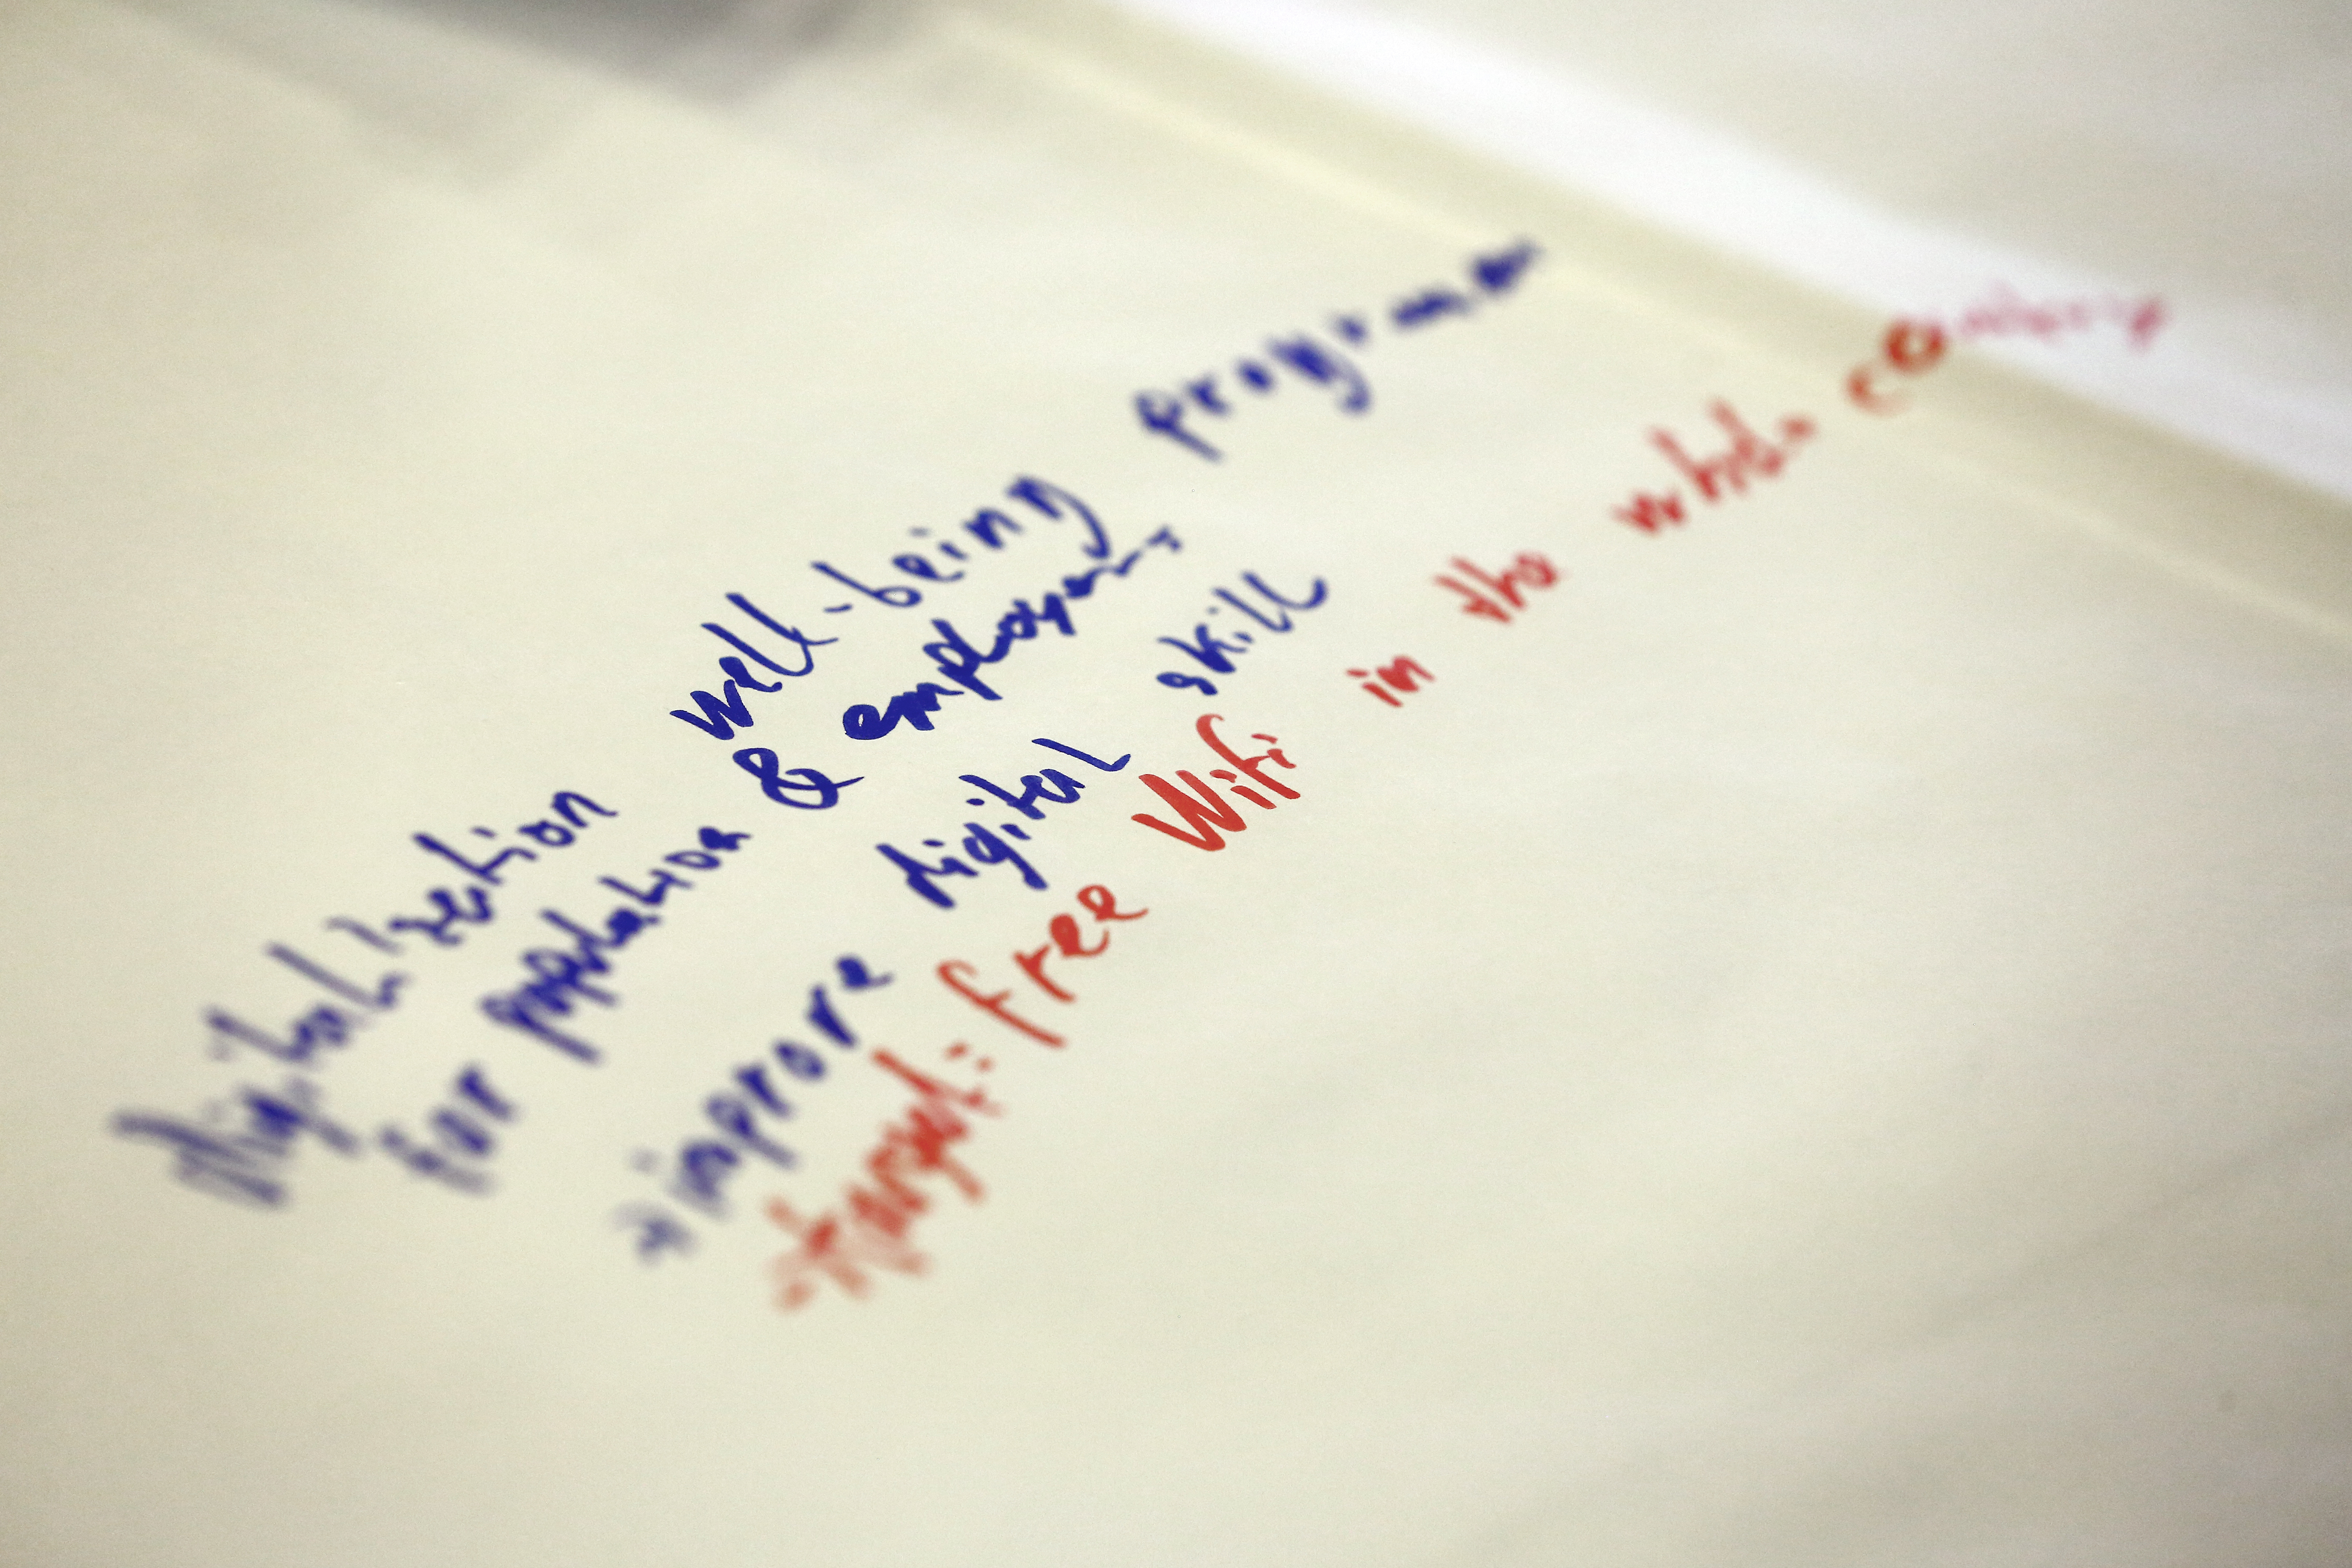 Digitalization well-being program
for population & employment
improve digital skill
target: free Wifi in the whole